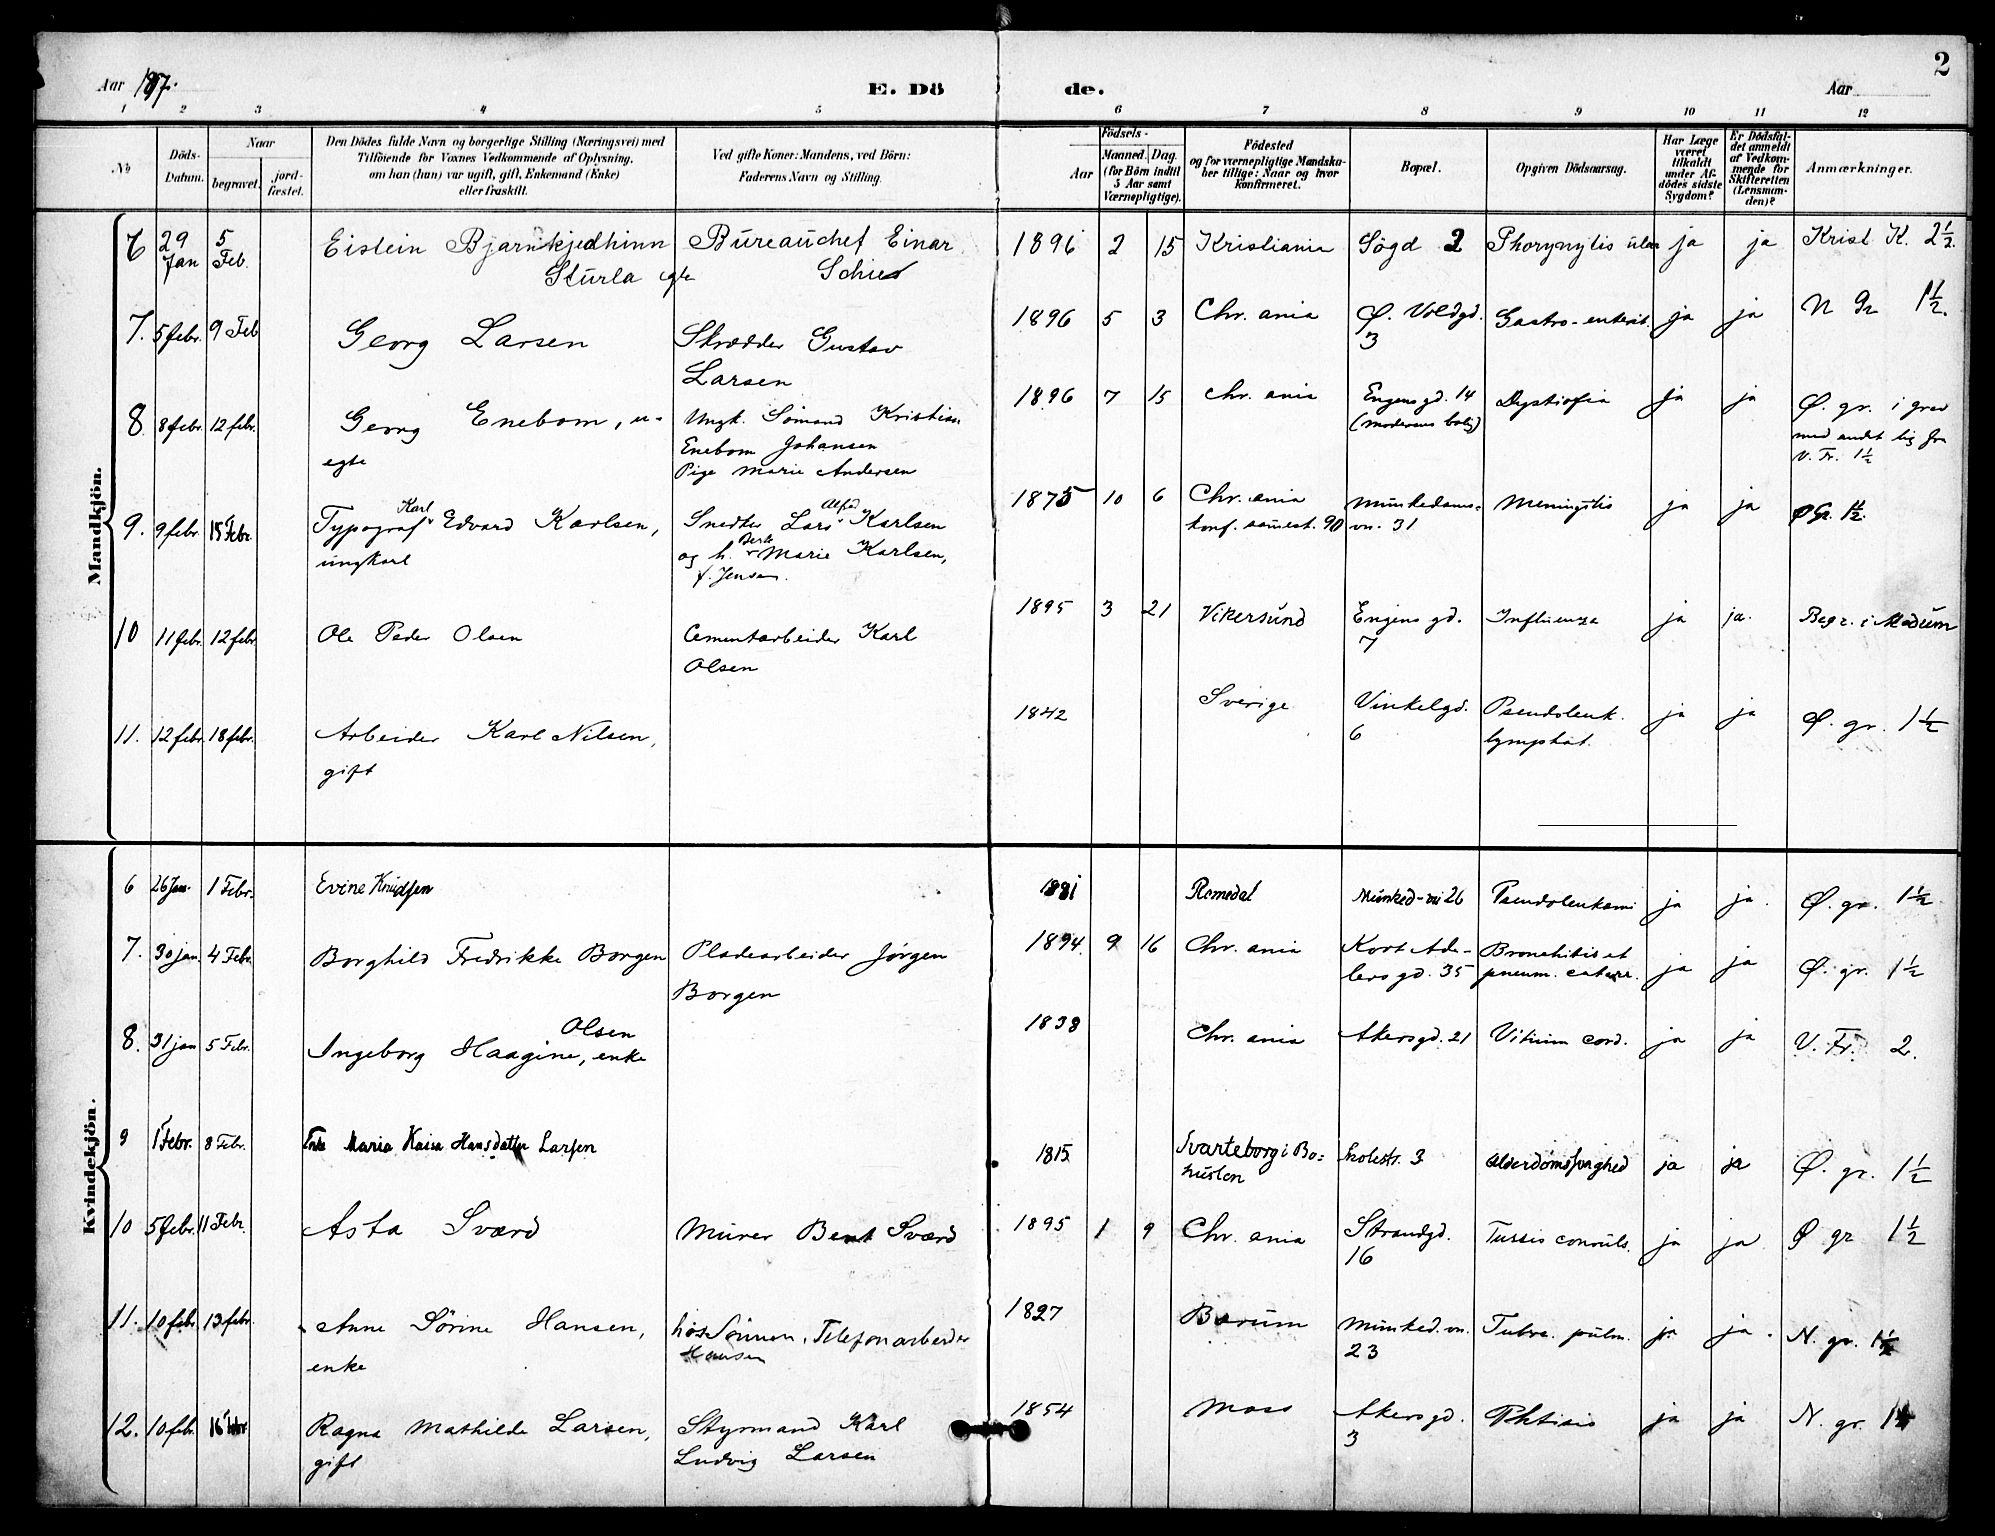 2
Aar 1897.
E. Dö
de.
Aar
1 2 3 4 5 6 7 8 9 10 11 12
No
Döds-Datum.
Naar
begravet.
jord-fæstet.
Den Dödes fulde Navn og borgerlige Stilling (Næringsvei) med
Tilföiende for Voxnes Vedkommende af Oplysning,
om han (hun) var ugift, gift, Enkemand (Enke)
eller fraskilt.
Ved gifte Koner: Mandens, ved Börn:
Faderens Navn og Stilling.
Födsels-
Aar
Maaned. Dag.
(for Börn indtil
5 Aar samt
Værnepligtige).
Födested
og for værnepligtige Mandska-
ber tillige: Naar og hvor
konfirmeret.
Bopæl.
Opgiven Dödsaarsag.
Har Læge
været
tilkaldt
under Af-
dödes sidste
Sygdom?
Er Dödsfal-
det anmeldt
af Vedkom-
mende for
Skifteretten
(Lensman-
den)?
Anmærkninger.
Mandkjön.
6 29 Jan 5 Feb. Eistein 1896 2 15 Kristiania 2 ja ja Krist K. 2½.
Sturla egte Bureauchef Einar
7. 5 febr. 9 Feb Georg Larsen Skrædder Gustav 1896 5 3 Chr. ania Ø. Voldgd. Gastro-enterit. ja ja N Gr 1½.
Larsen 3
8. 8 febr. 12 febr. Georg Enebom, u- Ungk. Sömand Kristian 1896 7 15 Chr. ania Engensgd. 14 ja ja Ø. gr. i grav
egte Enebom Johansen (moderens bolig) med andet lig fra
Pige Marie Andersen V. Fr. 1½
9. 9 febr. 15 Febr. Typograf Karl Edvard Karlsen, Snedker Lars Karlsen 1875 10 6 Chr. ania Munkedams- Meningitis ja ja Ø Gr. 1½.
ungkarl og h. Marie Karlsen, konf. 90 vn. 31
f. Jensen.
10 11 febr. 12 febr. Ole Peder Olsen Cementarbeider Karl 1895 3 21 Vikersund Engensgd. Influenza ja ja. Begr. i Modum
Olsen 7
11. 12 febr. 18 febr. Arbeider Karl Nilsen, 1842 Sverige Vinkelgd. Pseudoleuk. ja ja Ø. gr. 1½
gift 6 lymphat.
Kvindekjön.
6 26 Jan. 1 Febr. Evine Knudsen 1881 Romedal Munked-vei 26 Pseudoleukæmi ja ja. Ø. gr. 1½
7. 30 jan. 4 Febr. Borghild Fredrikke Borgen Pladearbeider Jörgen 1894 9 16 Chr. ania Kort Ade- Bronchitis et ja ja Ø. gr. 1½
Borgen lersgd. 35 pneum. catarr.
8. 31 jan 5 Febr. Ingeborg Haagine Olsen, enke 1838 Chr. ania Akersgd. 21 Vitium cord. ja ja V. Fr. 2.
9 1 Febr. 8 Febr. Enke Maria Kaisa Hansdatter Larsen 1815 Svarteborg i Bo- Skolestr. 3 Alderdomssvaghed ja ja Ø. gr. 1½
huslen
10 5 febr. 11 Febr. Asta Sværd Murer Bent Sværd 1895 1 9 Chr. ania Strandgd. Tussis convuls. ja ja Ø gr 1½
16
11. 10 febr. 13 febr. Anne Sörine Hansen, hos Sönnen, Telefonarbeider 1827 Bærum Munked.vn. Tubrc. pulm. ja ja. N. gr. 1½
enke Hansen 23
12. 10 febr. 16 Ragna Mathilde Larsen, Styrmand Karl 1854 Moss Akersgd. Phtisis ja ja N. gr.
gift Ludvig Larsen 3